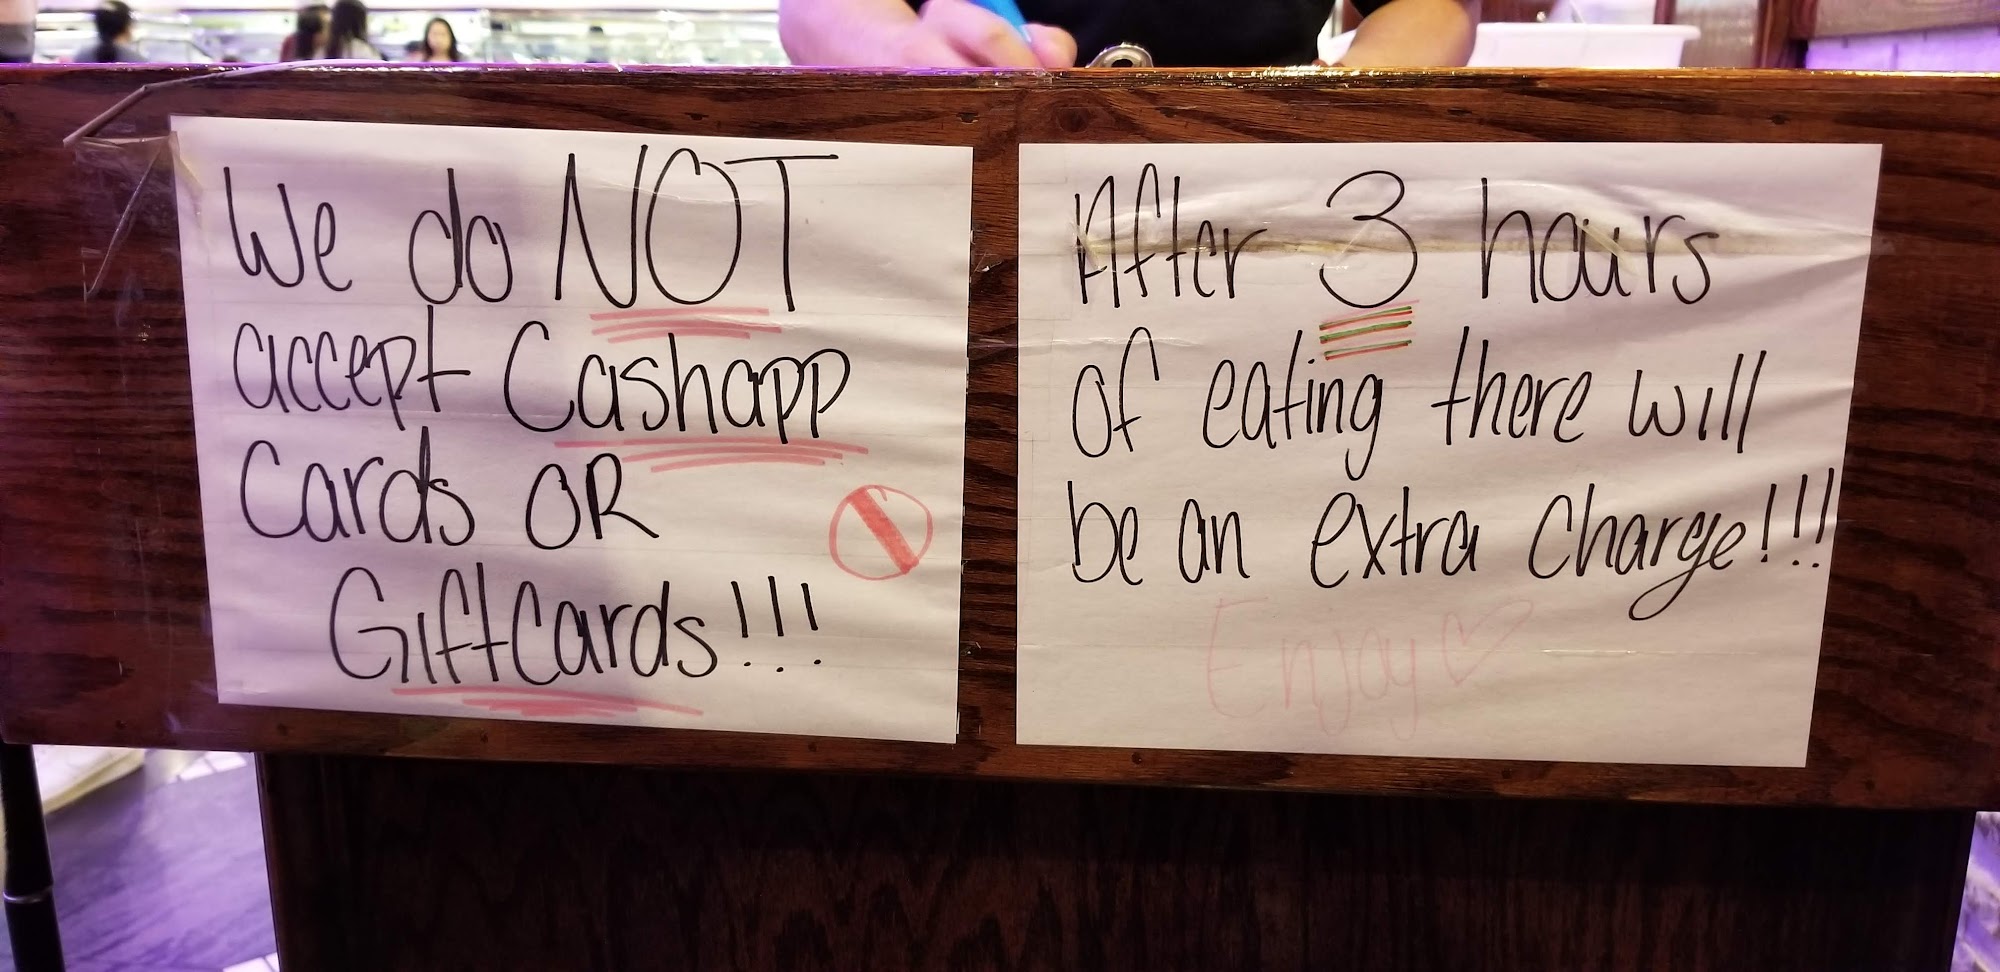 We do NOT
accept Cashapp
Cards OR
Giftcards!!!
After 3 hours
of eating there will
be an extra charge!!!
Enjoy♡